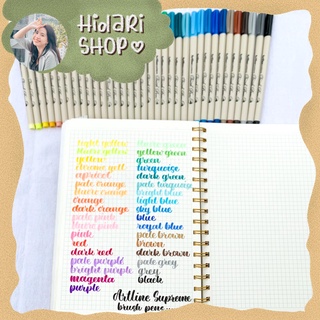 Hidari
SHOP
light yellow
fluoro yellow
yellow
chrome yell
apricot
pale orange
fluoro orange
orange
dark orange
pale pink
fluoro pink
pink
red
dark red
pale purple
bright purple
magenta
purple
fluoro green
yellow green
green
turquoise
dark green
pale turquoise
bright blue
light blue
sky blue
blue
royal blue
pale brown
brown
dark brown
pale grey
grey
black
Artline Supreme
brush pens